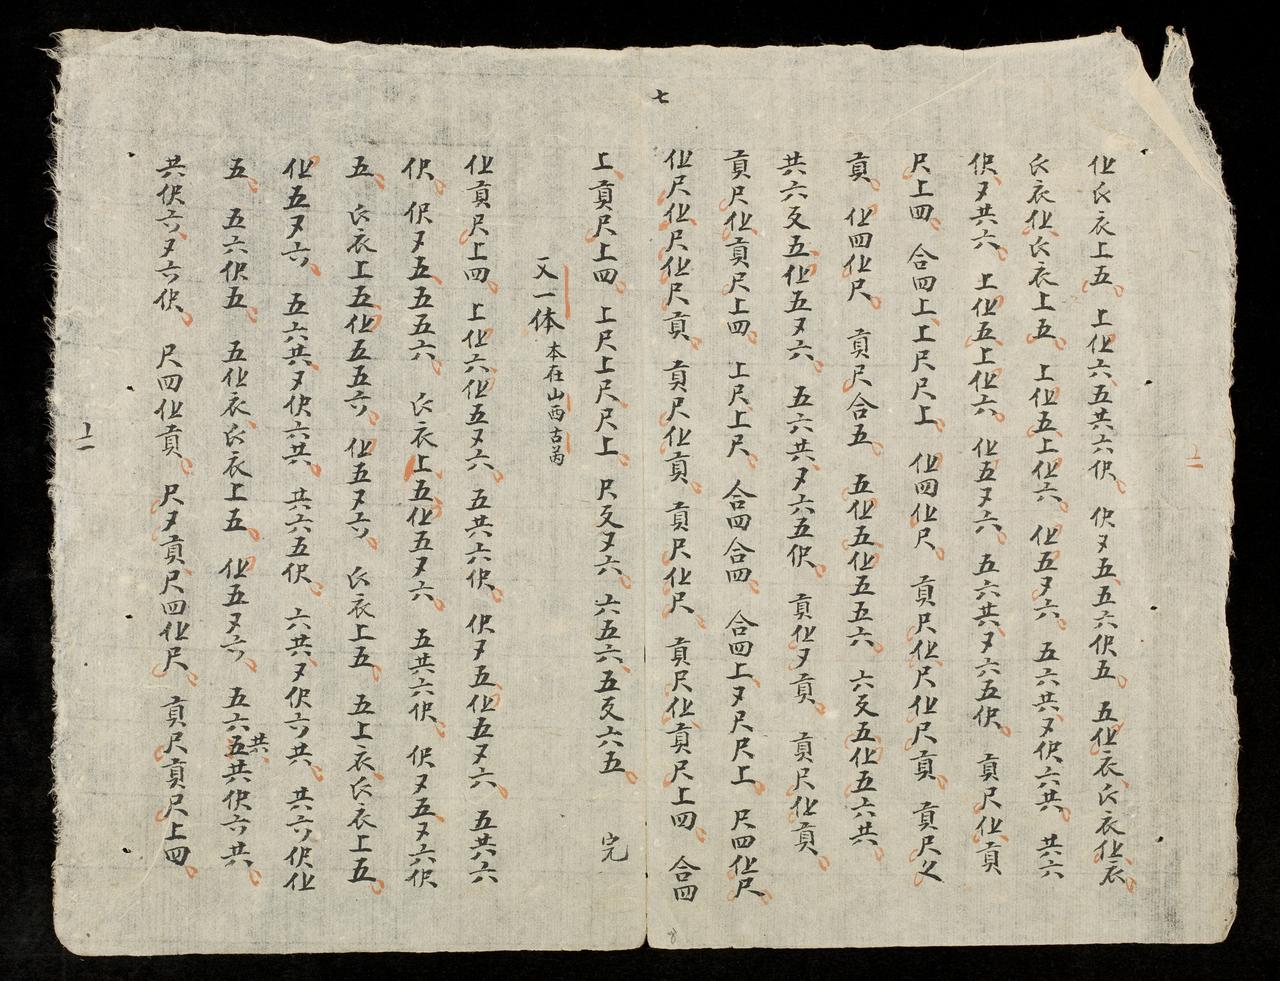 仩氏衣上五 上仩六五共六伬 伬又五五六伬五 五仩衣氏衣仩衣
氏衣仩氏衣上五 上仩五上仩六 仩五又六 五六共又伬六共 共六
伬又共六 上仩五上仩六 仩五又六 五六共又六五伬 貢尺仩貢
尺上四 合四上上尺尺上 仩四仩尺 貢尺仩尺仩尺貢 貢尺
貢 仩四仩尺 貢尺合五 五仩五仩五五六 六反五仩五六共
共六反五仩五又六 五六共又六五伬 貢仩又貢 貢尺仩貢
貢尺仩貢尺上四 上尺上尺 合四合四 合四上又尺尺上 尺四仩尺
仩尺仩尺仩尺貢 貢尺仩貢 貢尺仩尺 貢尺仩貢尺上四 合四
七
上貢尺上四 上尺上尺尺上 尺反又六 六五六五反六五 完
又一体 本在山西古芮
仩貢尺上四 上仩六仩五又六 五共六伬 伬又五仩五又六 五共六
伬 伬又五五五六 氏衣上五仩五又六 五共六伬 伬又五又六伬
五 氏衣上五仩五五六 仩五又六 氏衣上五 五上衣氏衣上五
仩五又六 五六共又伬六共 共六五伬 六共又伬六共 共六伬仩
五 五六伬五 五仩衣氏衣上五 仩五又六 五六五共共伬六共
共伬六又六伬 尺四仩貢 尺又貢尺四仩尺 貢尺貢尺上四